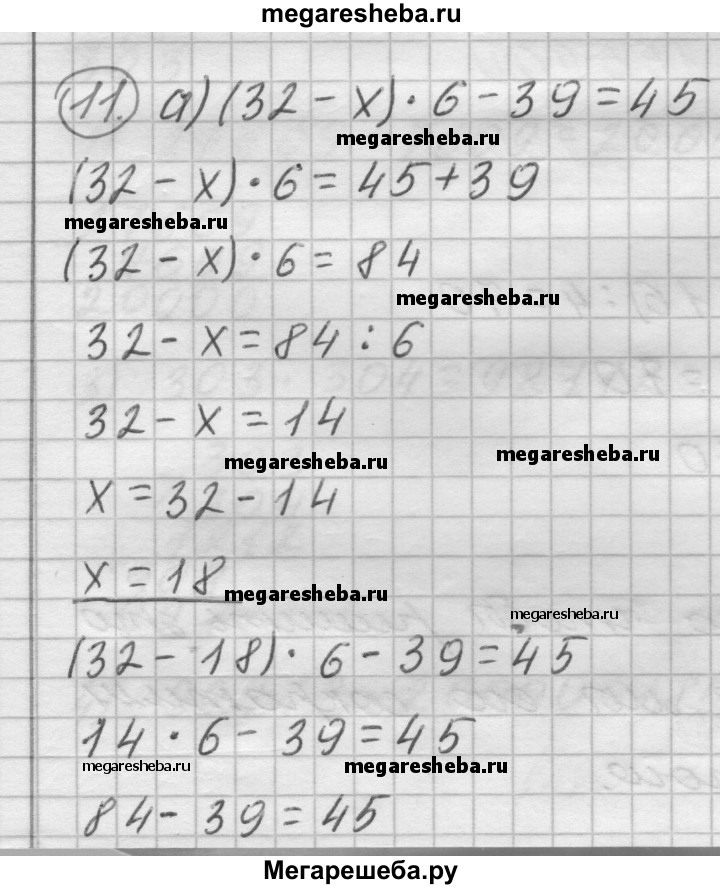 megaresheba.ru
11. а) (32 - x) · 6 - 39 = 45
megaresheba.ru
(32 - x) · 6 = 45 + 39
megaresheba.ru
(32 - x) · 6 = 84
megaresheba.ru
32 - x = 84 : 6
32 - x = 14
megaresheba.ru
megaresheba.ru
x = 32 - 14
x = 18
megaresheba.ru
megaresheba.ru
(32 - 18) · 6 - 39 = 45
14 · 6 - 39 = 45
megaresheba.ru
megaresheba.ru
84 - 39 = 45
Мегарешеба.ру